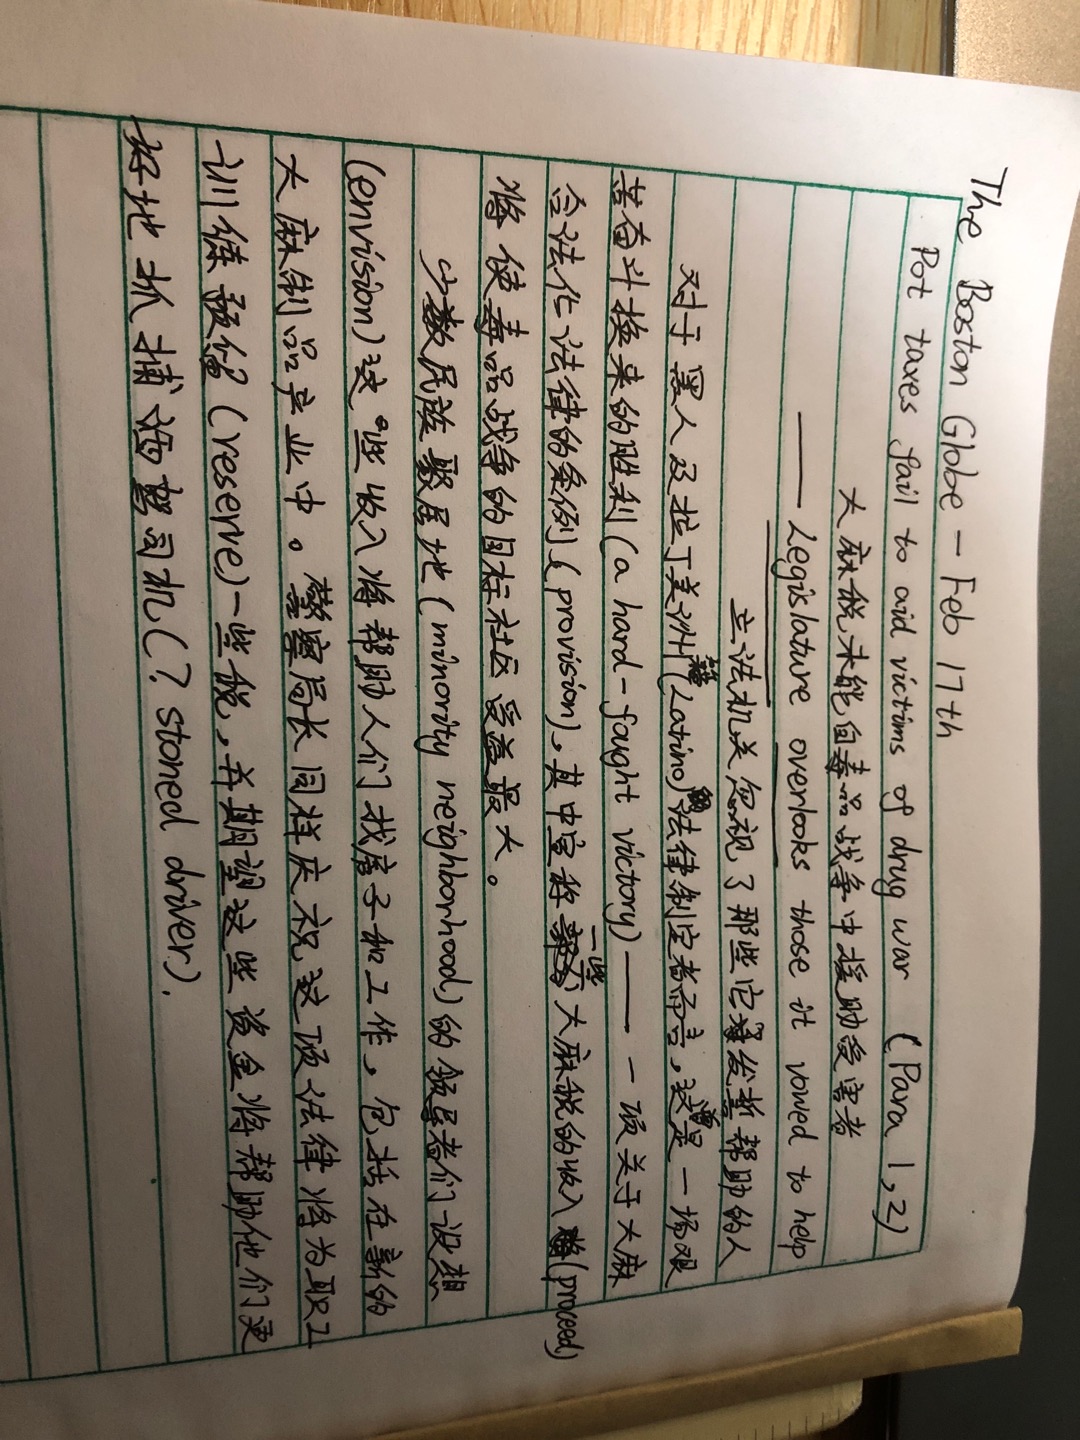 The Boston Globe - Feb 17th
Pot taxes fail to aid victims of drug war (Para 1,2)
大麻税未能向毒品战争中援助受害者
—— Legislature overlooks those it vowed to help
立法机关忽视了那些它发誓帮助的人
对于黑人及拉丁美洲籍(Latino)法律制定者而言,这是一场艰
苦奋斗换来的胜利(a hard-fought victory)—— 一项关于大麻
合法化法律的条例(provision),其中宣称一些大麻税的收入(proceed)
将使毒品战争的目标社区受益最大。
少数民族聚居地(minority neighborhood)的领导者们设想
(envision)这些收入将帮助人们找房子和工作,包括在新的
大麻制品产业中。警察局长同样庆祝这项法律将为职工
训练预留(reserve)一些税,并期望这些资金将帮助他们更
好地抓捕酒驾司机(? stoned driver).